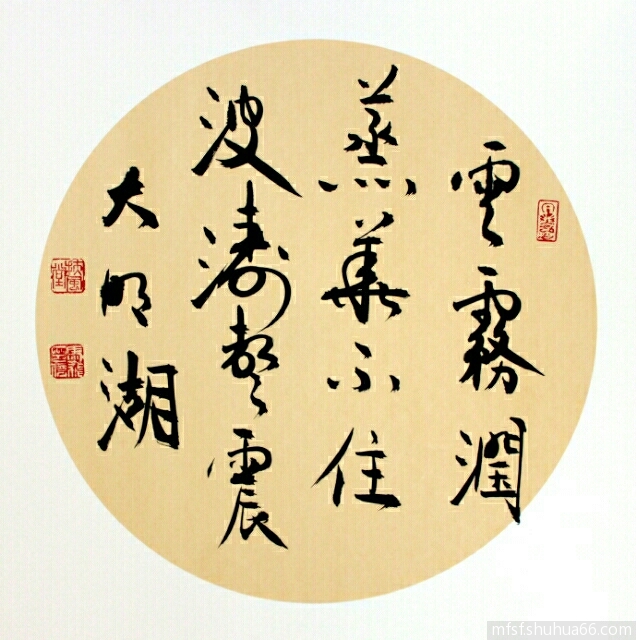 雲霧潤
蒸華不住
波濤聲震
大明湖
mfsfshuhua66.com